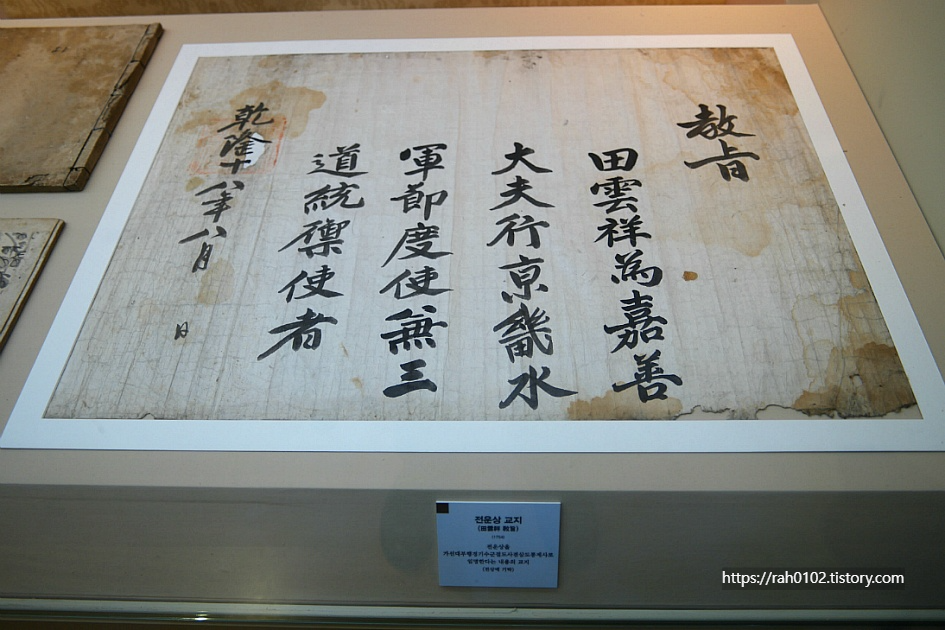 敎旨
田雲祥爲嘉善
大夫行京畿水
軍節度使兼三
道統禦使者
乾隆十八年八月 日
전운상 교지
(田雲祥 敎旨)
전운상을
가선대부행경기수군절도사겸삼도통제사로
임명한다는 내용의 교지
https://rah0102.tistory.com